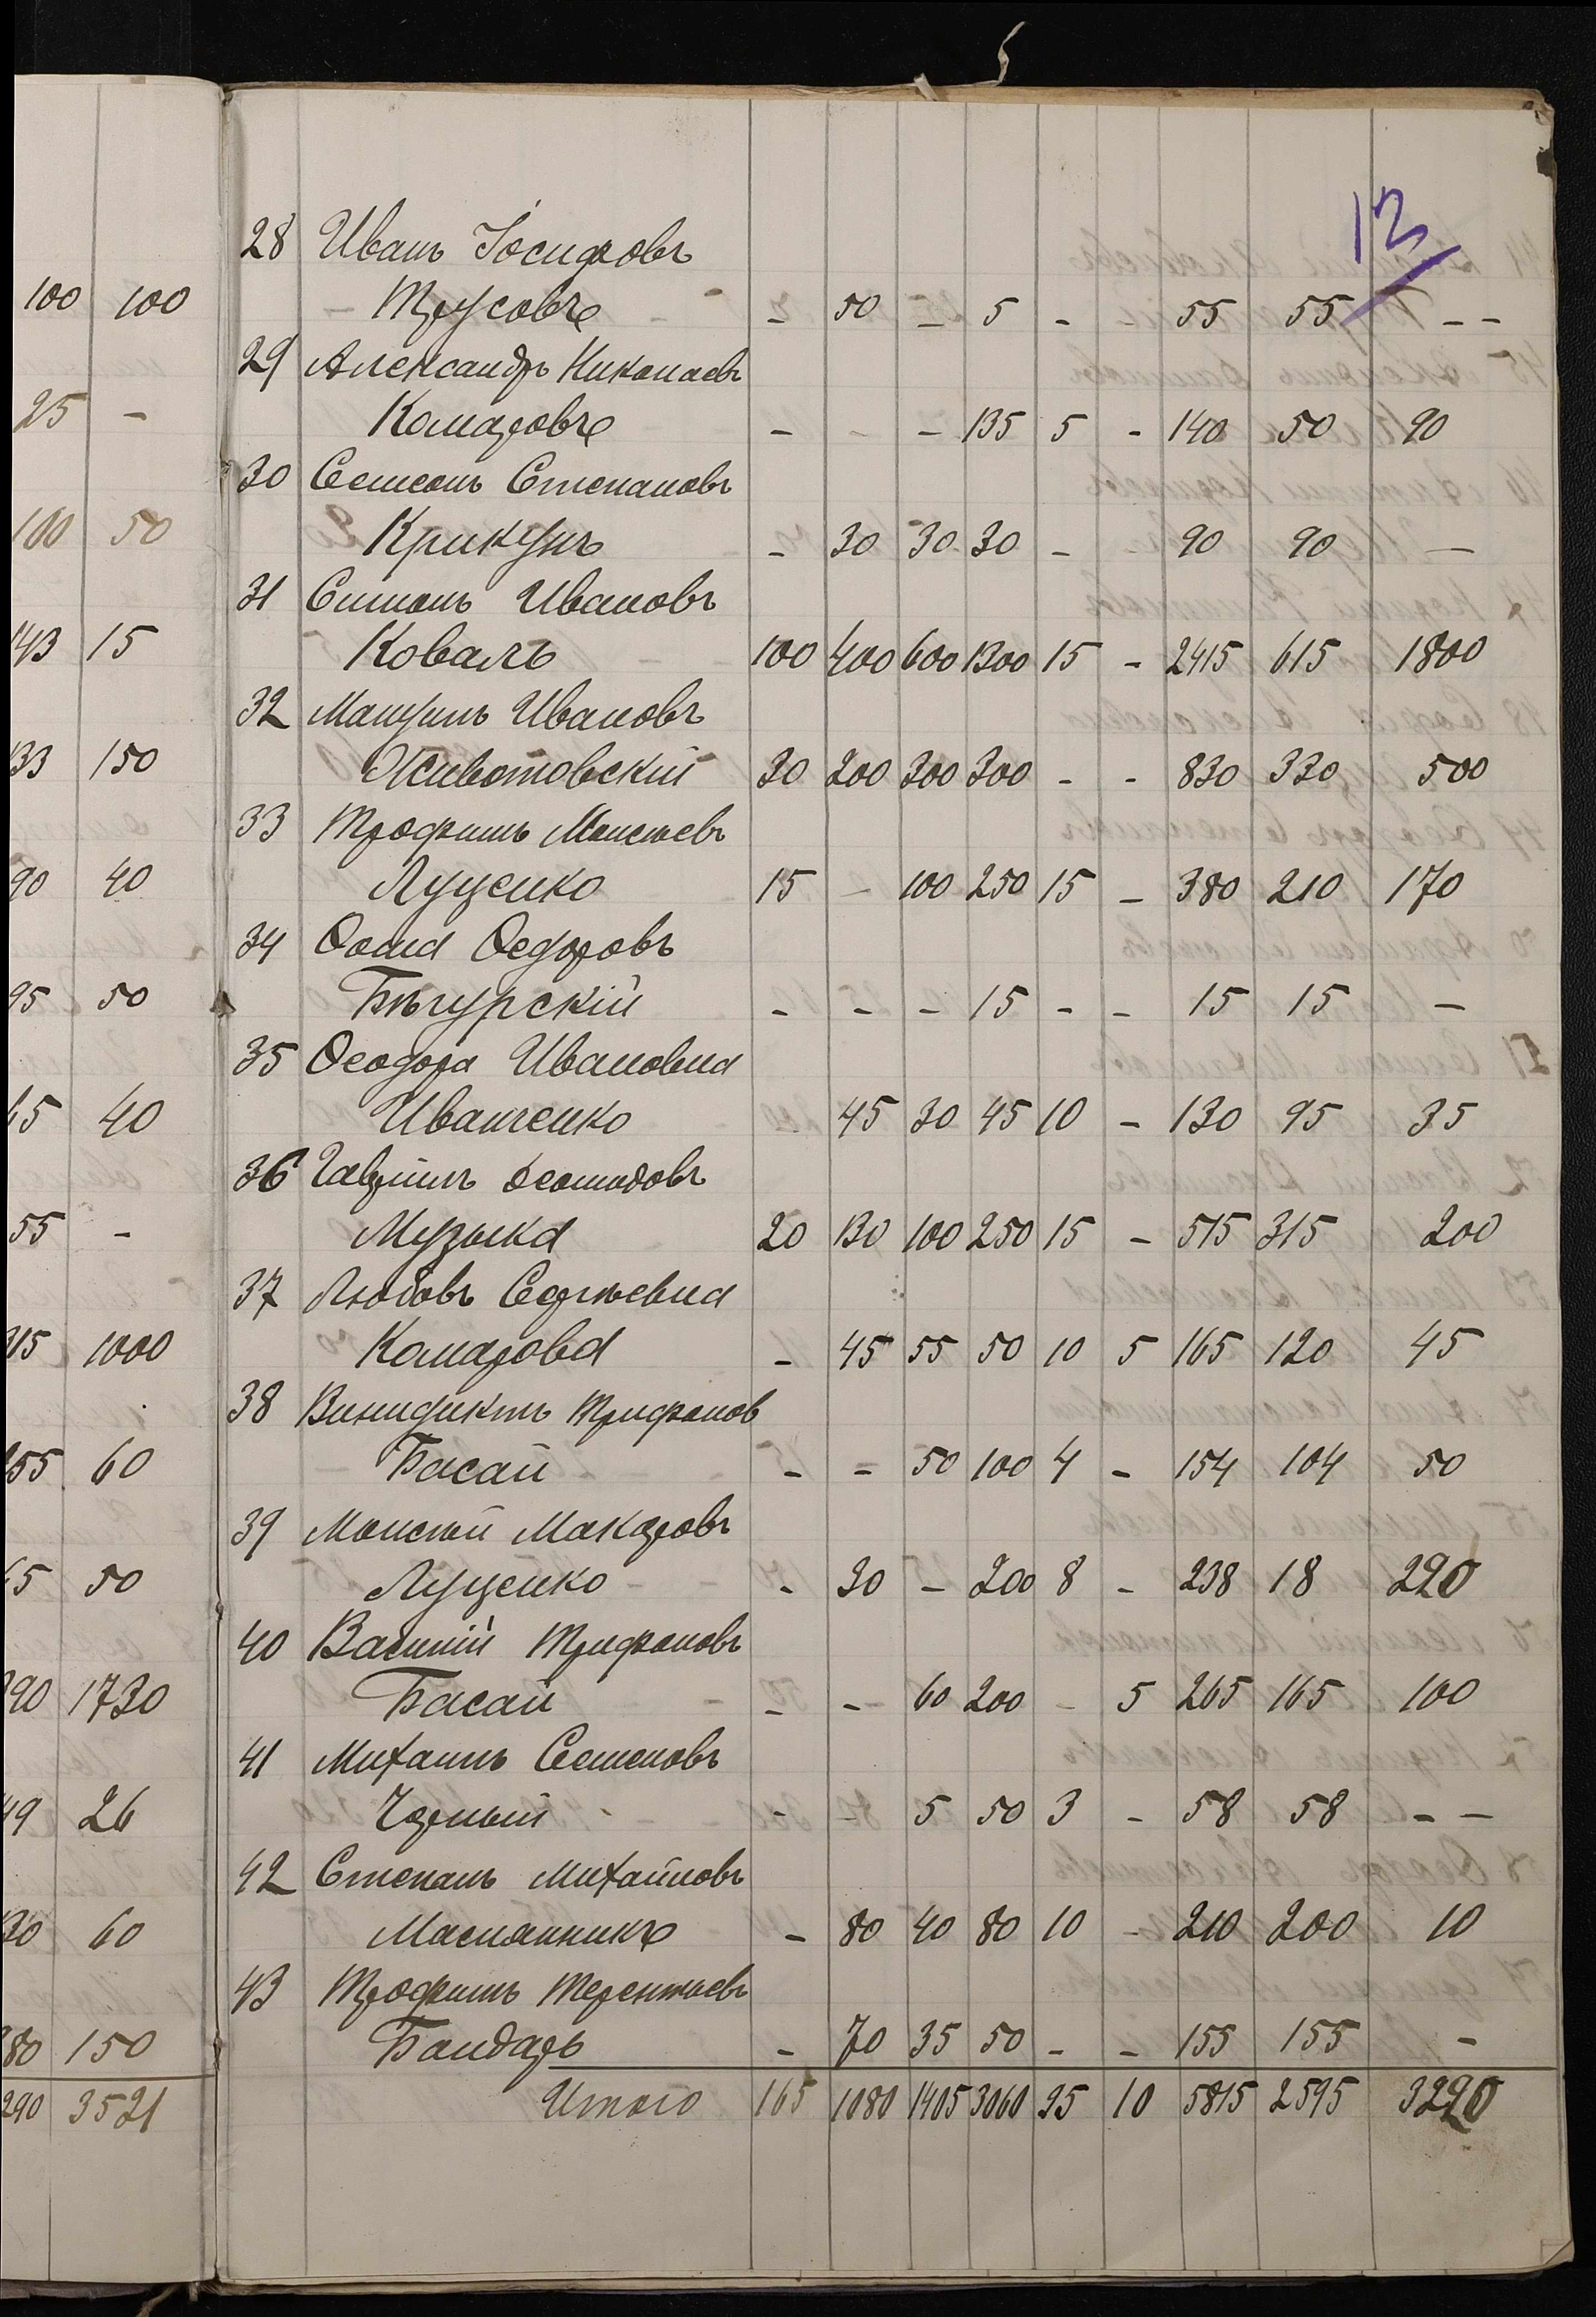 13
100 100
25 -
100 50
143 15
33 150
90 40
95 50
15 40
55 -
315 1000
155 60
15 50
290 1730
49 26
30 60
80 150
290 3521
28 Иванъ Іосифовъ
Трусовъ - 50 - 5 - - 55 55 - -
29 Александръ Николаевъ
Комаровъ - - - 135 5 - 140 50 90
30 Семенъ Степановъ
Крикунъ - 30 30 30 - - 90 90 -
31 Симонъ Ивановъ
Коваль 100 400 600 1300 15 - 2415 615 1800
32 Мануилъ Ивановъ
Животовскій 30 200 300 300 - - 830 330 500
33 Трофимъ Моисеевъ
Луценко 15 - 100 250 15 - 380 210 170
34 Ѳома Ѳедоровъ
Бѣгурскій - - - 15 - - 15 15 -
35 Ѳеодора Ивановна
Иванченко 45 30 45 10 - 130 95 35
36 Гавріилъ Леонидовъ
Музыка 20 130 100 250 15 - 515 315 200
37 Любовь Сергѣевна
Комарова - 45 55 50 10 5 165 120 45
38 Винидиктъ Трифонов
Басай - - 50 100 4 - 154 104 50
39 Моисей Макаровъ
Луценко - 30 - 200 8 - 238 18 220
40 Василій Трифоновъ
Басай - - 60 200 - 5 265 165 100
41 Михаилъ Семеновъ
Черный - - 5 50 3 - 58 58 - -
42 Степанъ Михайловъ
Маслянникъ - 80 40 80 10 - 210 200 10
43 Трофимъ Терентьевъ
Бандарь - 70 35 50 - - 155 155 -
Итого 165 1080 1405 3060 95 10 5815 2595 3220